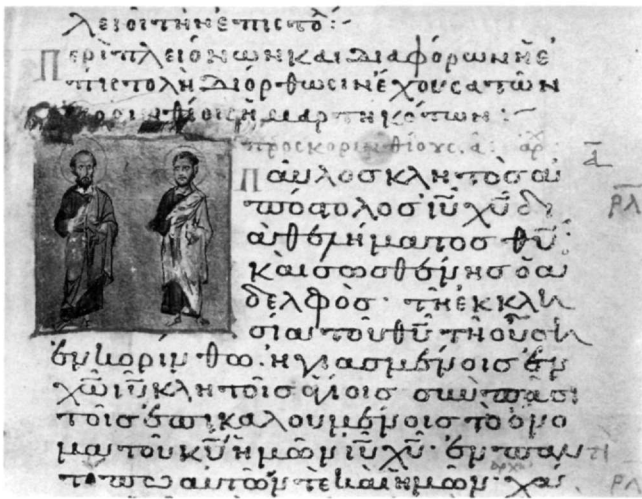 λει οι την επιστο̅ :-
Περὶ πλειόνων καὶ διαφόρων ἡ ἐ
πιστολὴ διόρθωσιν ἔχουσα τῶν
κορινθίοις ἡμαρτηκότων :~
προς κορινθίους. α̅: αρχ α̅
Παῦλος κλητὸς ἀ
πόστολος ι̅υ̅ χ̅υ̅ δι
ὰ θελήματος θ̅υ̅
καὶ σωσθένης ὁ ἀ
δελφὸς· τῆ ἐκκλη
σίαι τοῦ θ̅υ̅ τῆ οὔση
ἐν κορίνθω. ἡγιασμένοις ἐν
χ̅ω̅ ι̅υ̅ κλητοῖς ἁγίοις σὺν πᾶσι
τοῖς ἐπικαλουμένοις τὸ ὄνο
μα τοῦ κ̅υ̅ ἡμῶν ι̅υ̅ χ̅υ̅· ἐν παντὶ
τόπω αὐτῶν τε καὶ ἡμῶν· χά